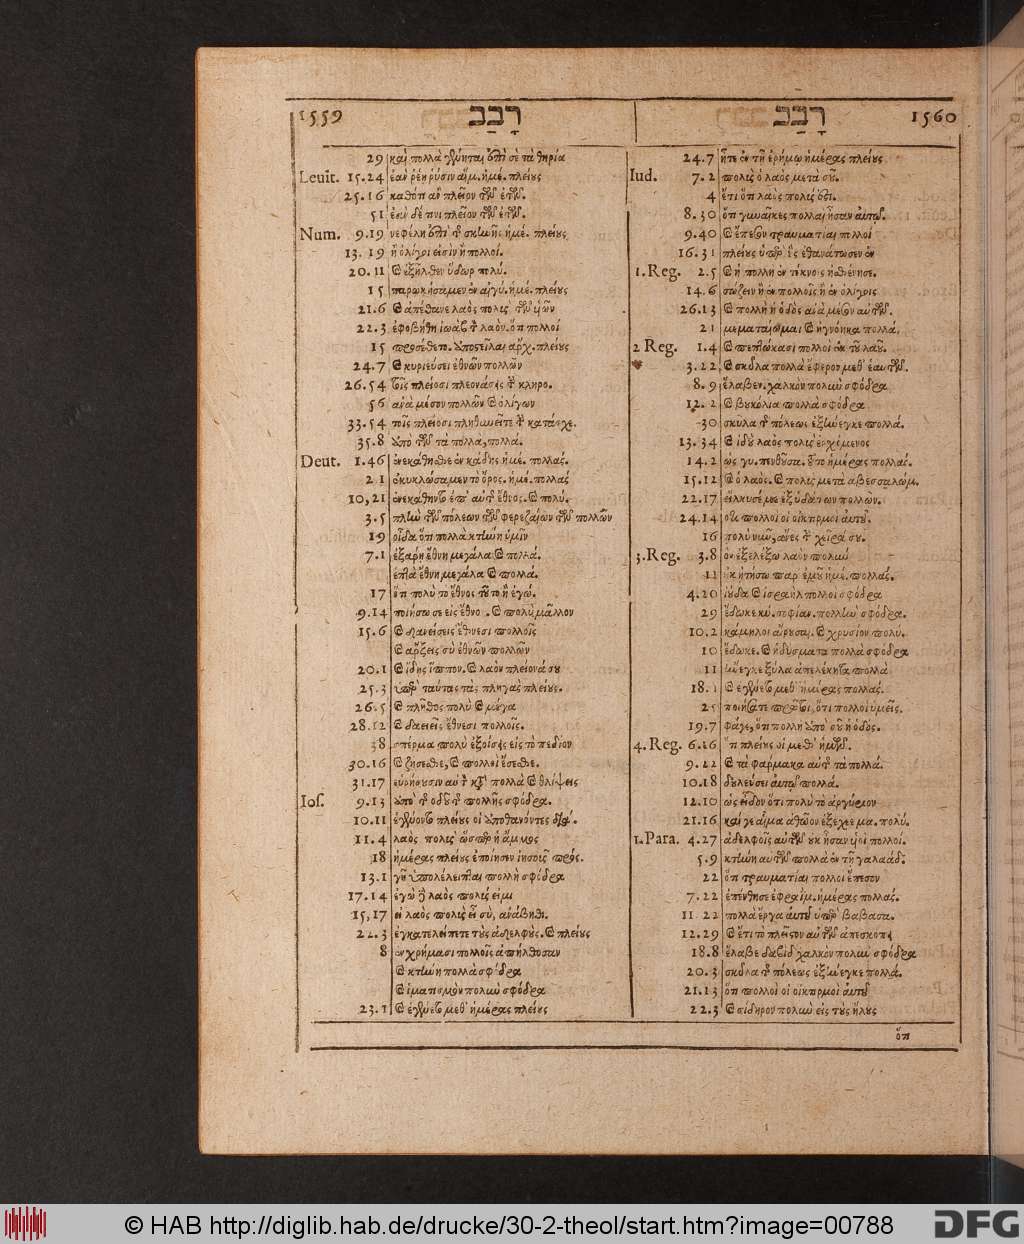 1559 רָבַב
29 καὶ πολλὰ γένηται ἐπὶ σὲ τὰ θηρία
Leuit. 15.24 ἐὰν ῥέη ῥύσιν αἵμ. ἡμέ. πλείους
25.16 καθότι ἂν πλεῖον τῶν ἐτῶν.
51 πλεῖον τῶν ἐτῶν.
Num. 9.19 νεφέλη ἐπὶ τ σκηνῆς ἡμέ. πλείους
13.19 ἢ ὀλίγοι εἰσὶν ἢ πολλοί.
20.11 καὶ ἐξῆλθεν ὕδωρ πολύ.
15 παρωκήσαμεν ἐν αἰγύ. ἡμέ. πλείους
21.6 καὶ ἀπέθανε λαὸς πολὺς τῶν
22.3 ἐφοβήθη μωὰβ τ λαὸν. ὅτι πολλοί
15 προσέθετο. ἀποστεῖλαι ἄρχ. πλείους
24.7 καὶ κυριεύσει ἐθνῶν πολλῶν
26.54 τοῖς πλείοσι πλεονάσεις τ κληρο.
56 ἀνὰ μέσον πολλῶν καὶ ὀλίγων
33.54 τοῖς πλείοσι πληθυνεῖτε τ κατάσχε.
35.8 ἀπὸ τῶν τὰ πολλα, πολλα.
Deut. 1.46 ἐνεκάθησθε ἐν κάδης ἡμέ. πολλάς.
2.1 ἐκυκλώσαμεν τὸ ὄρος. ἡμέ. πολλάς
10,21 ἐνεκάθηντο ἐπ' αὐτ ἔθνος. καὶ πολύ.
3.5 πλὴν τῶν πόλεων τῶν φερεζαίων τῶν πολλῶν
19 οἶδα ὅτι πολλὰ κτήνη ὑμῖν
7.1 ἐξαρῆ ἔθνη μεγάλα καὶ πολλά.
ἑπτὰ ἔθνη μεγάλα καὶ πολλά.
17 ὅτι πολὺ τὸ ἔθνος τοῦτο ἢ ἐγώ.
9.14 ποιήσω σε εἰς ἔθνο . καὶ πολὺ μᾶλλον
15.6 καὶ δανείσεις ἔθνεσι πολλοῖς
καὶ ἄρξεις σὺ ἐθνῶν πολλῶν
20.1 καὶ ἴδης ἵππον. καὶ λαὸν πλείονά σου
25.3 ὑπὲρ ταύτας τὰς πληγὰς πλείους.
26.5 καὶ πλῆθος πολὺ καὶ μέγα
28.12 καὶ δανειεῖς ἔθνεσι πολλοῖς.
38 σπέρμα πολὺ ἐξοίσεις εἰς τὸ πεδίον
30.16 καὶ ζήσεσθε, καὶ πολλοὶ ἔσεσθε.
31.17 εὑρήσουσιν αὐτ κακὰ πολλὰ καὶ θλίψεις
Ios. 9.13 ἀπὸ τ ὁδοῦ τ πολλῆς σφόδρα.
10.11 ἐγένοντο πλείους οἱ ἀποθανόντες διά.
11.4 λαὸς πολὺς ὥσπερ ἡ ἄμμος
18 ἡμέρας πλείους ἐποίησεν ἰησοῦς πρός.
13.1 γῆ ὑπολέλειπται πολλὴ σφόδρα
17.14 ἐγὼ δὲ λαὸς πολύς εἰμι
15,17 εἰ λαὸς πολὺς εἶ σὺ, ἀνάβηθι.
22.3 ἐγκατελείπετε τοὺς ἀδελφούς. καὶ πλείους
8 ἐν χρήμασι πολλοῖς ἀπήλθοσαν
καὶ κτήνη πολλὰ σφόδρα
καὶ ἱματισμὸν πολὺν σφόδρα
23.1 καὶ ἐγένετο μεθ' ἡμέρας πλείους
רָבַב 1560
24.7 ἦτε ἐν τῇ ἐρήμῳ ἡμέρας πλείους
Iud. 7.2 πολὺς ὁ λαὸς μετὰ σοῦ.
4 ἔτι ὅτι λαὸς πολύς ἐστι.
8.30 ὅτι γυναῖκες πολλαὶ ἦσαν αὐτῷ.
9.40 καὶ ἔπεσον τραυματίαι πολλοὶ
16.31 πλείους ὑπὲρ οὓς ἐθανάτωσεν ἐν
1.Reg. 2.5 καὶ ἡ πολλὴ ἐν τέκνοις ἠσθένησε.
14.6 σώζειν ἢ ἐν πολλοῖς ἢ ἐν ὀλίγοις
26.13 καὶ πολλὴ ἡ ὁδὸς ἀνὰ μέσον αὐτῶν.
21 μεματαίωμαι καὶ ἠγνόηκα πολλά.
2 Reg. 1.4 καὶ πεπτώκασι πολλοὶ ἐκ τοῦ λαοῦ.
3.22 καὶ σκῦλα πολλὰ ἔφερον μεθ' ἑαυτῶν.
8.9 ἔλαβεν. χαλκὸν πολὺν σφόδρα
12.2 καὶ βουκόλια πολλὰ σφόδρα
30 σκῦλα τ πόλεως ἐξήνεγκε πολλά.
13.34 καὶ ἰδοὺ λαὸς πολὺς ἐρχόμενος
14.2 ὡς γυ. πενθοῦσα. τοῦτο ἡμέρας πολλάς.
15.12 καὶ ὁ λαὸς. καὶ πολὺς μετὰ αβεσσαλώμ.
22.17 εἵλκυσέ με ἐξ ὑδάτων πολλῶν.
24.14 ὅτι πολλοὶ οἱ οἰκτιρμοὶ αὐτοῦ.
16 πολὺ νῦν, ἄνες τ χεῖρά σου.
3.Reg. 3.8 ὃν ἐξελέξω λαὸν πολὺν
11 οὐκ ᾐτήσω παρ' ἐμοῦ ἡμέ. πολλάς.
4.20 ἰούδα καὶ ἰσραὴλ πολλοὶ σφόδρα
29 ἔδωκε κύ. σοφίαν. πολλὴν σφόδρα.
10.2 κάμηλοι αἴρουσαι. καὶ χρυσίον πολύ.
10 ἔδωκε. καὶ ἡδύσματα πολλὰ σφόδρα
11 ἤνεγκε ξύλα ἀπελέκητα πολλὰ
18.1 καὶ ἐγένετο μεθ' ἡμέρας πολλάς.
25 ποιήσατε πρῶτοι, ὅτι πολλοὶ ὑμεῖς.
19.7 φάγε, ὅτι πολλὴ ἀπὸ σοῦ ἡ ὁδός.
4.Reg. 6.16 ὅτι πλείους οἱ μεθ' ἡμῶν.
9.22 καὶ τὰ φάρμακα αὐτ τὰ πολλά.
10.18 δουλεύσει αὐτῷ πολλά.
12.10 ὡς εἶδον ὅτι πολὺ τὸ ἀργύριον
21.16 καί γε αἷμα ἀθῶον ἐξέχεε μα. πολύ.
1.Para. 4.27 ἀδελφοῖς αὐτῶν οὐκ ἦσαν υἱοὶ πολλοί.
5.9 κτήνη αὐτῶν πολλὰ ἐν γῇ γαλαάδ.
22 ὅτι τραυματίαι πολλοὶ ἔπεσον
7.22 ἐπένθησε ἐφραίμ. ἡμέρας πολλάς.
11.22 πολλὰ ἔργα αὐτοῦ ὑπὲρ
12.29 καὶ ἔτι τὸ πλεῖστον αὐτῶν ἀπεσκόπει
18.8 ἔλαβε δαβὶδ χαλκὸν πολὺν σφόδρα
20.3 σκῦλα τ πόλεως ἐξήνεγκε πολλά.
21.13 ὅτι πολλοὶ οἱ οἰκτιρμοὶ αὐτοῦ
22.3 καὶ σίδηρον πολὺν εἰς τοὺς ἥλους
ὅτι
© HAB http://diglib.hab.de/drucke/30-2-theol/start.htm?image=00788
DFG